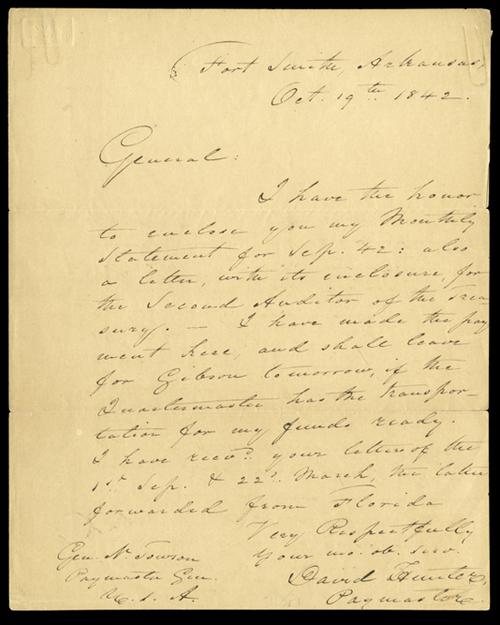 Fort Smith, Arkansas,
Oct. 19th 1842.
General:
I have the honor
to enclose you my Monthly
Statement for Sep. 42: also
a letter, with its enclosure, for
the Second Auditor of the Trea
sury. — I have made the pay
ment here, and shall leave
for Gibson tomorrow, if the
Quartermaster has the transpor-
tation for my funds ready.
I have recvd. your letters of the
1st Sep. & 22d. March, the latter
forwarded from Florida
Very Respectfully
Your mo. ob. serv.
David Hunter,
Paymaster
Gen. N. Towson
Paymaster Gen.
U. S. A.